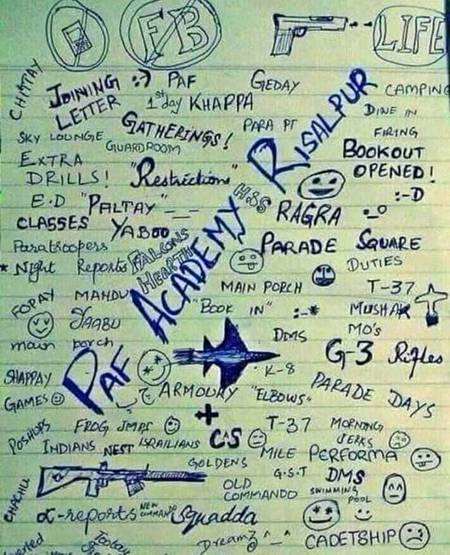 FB
LIFE
CHATPAY
JOINING
LETTER
:-)
PAF
1st day KHAPPA
GEDAY
CAMPING
DINE IN
SKY LOUNGE
GATHERINGS!
GUARDROOM
PARA PT
FIRING
EXTRA
DRILLS!
"Restrictions"
BOOKOUT
OPENED!
:-D
E.D
CLASSES
"PALTAY"
YABOO
HSS
RAGRA
Paratroopers
* Night Reports
FALCONS
HEARTH
PARADE SQUARE
DUTIES
PAF ACADEMY RISALPUR
FOPAY
MAHDU
JAABU
MAIN PORCH
T-37
"BOOK IN"
:-*
MUSHAK
main porch
DMS
MO's
K-8
G-3 Rifles
SHAPPAY
GAMES
ARMOURY
"ELBOWS"
PARADE DAYS
+
FROG JMPS
C-S
T-37
MORNING
JERKS
POSHUPS
INDIANS NEST
ISRAILIANS
MILE PERFORMA
GOLDENS
G.S.T
DMS
CHACHU
OLD
COMMANDO
SWIMMING
POOL
α-reports
Squadda
Dream
CADETSHIP